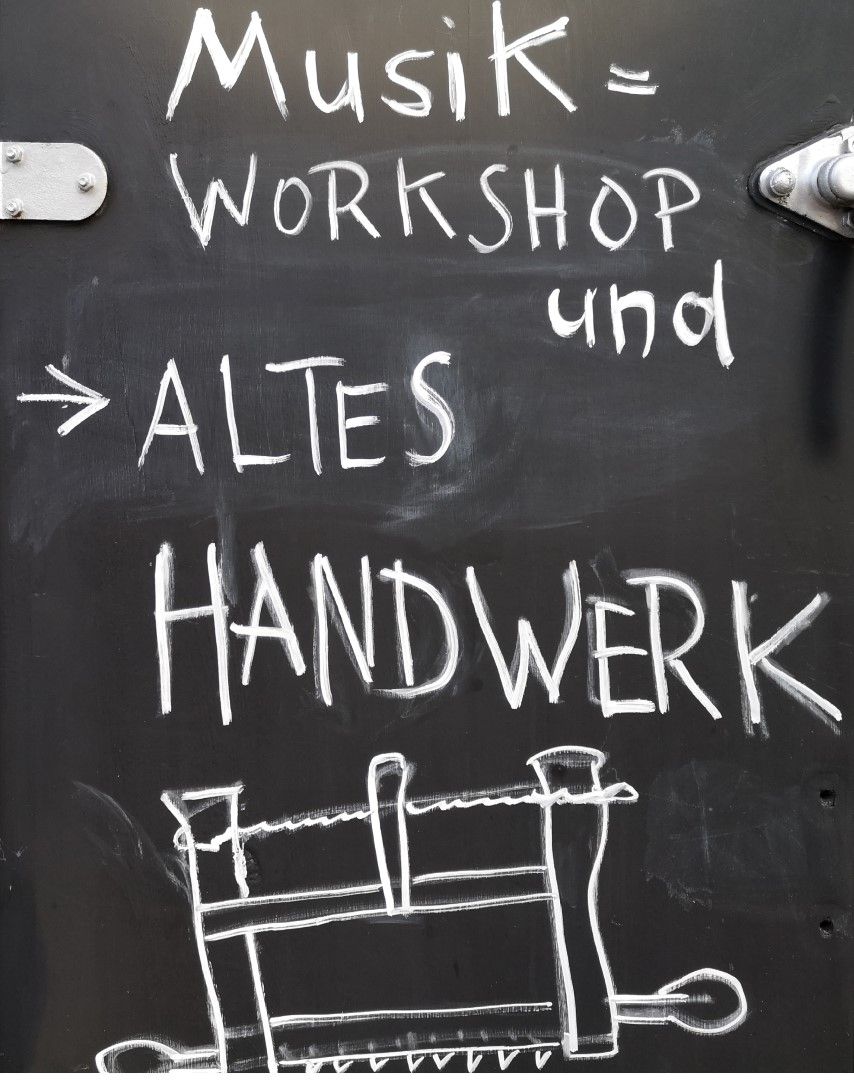 Musik=
WORKSHOP
und
→ ALTES
HANDWERK